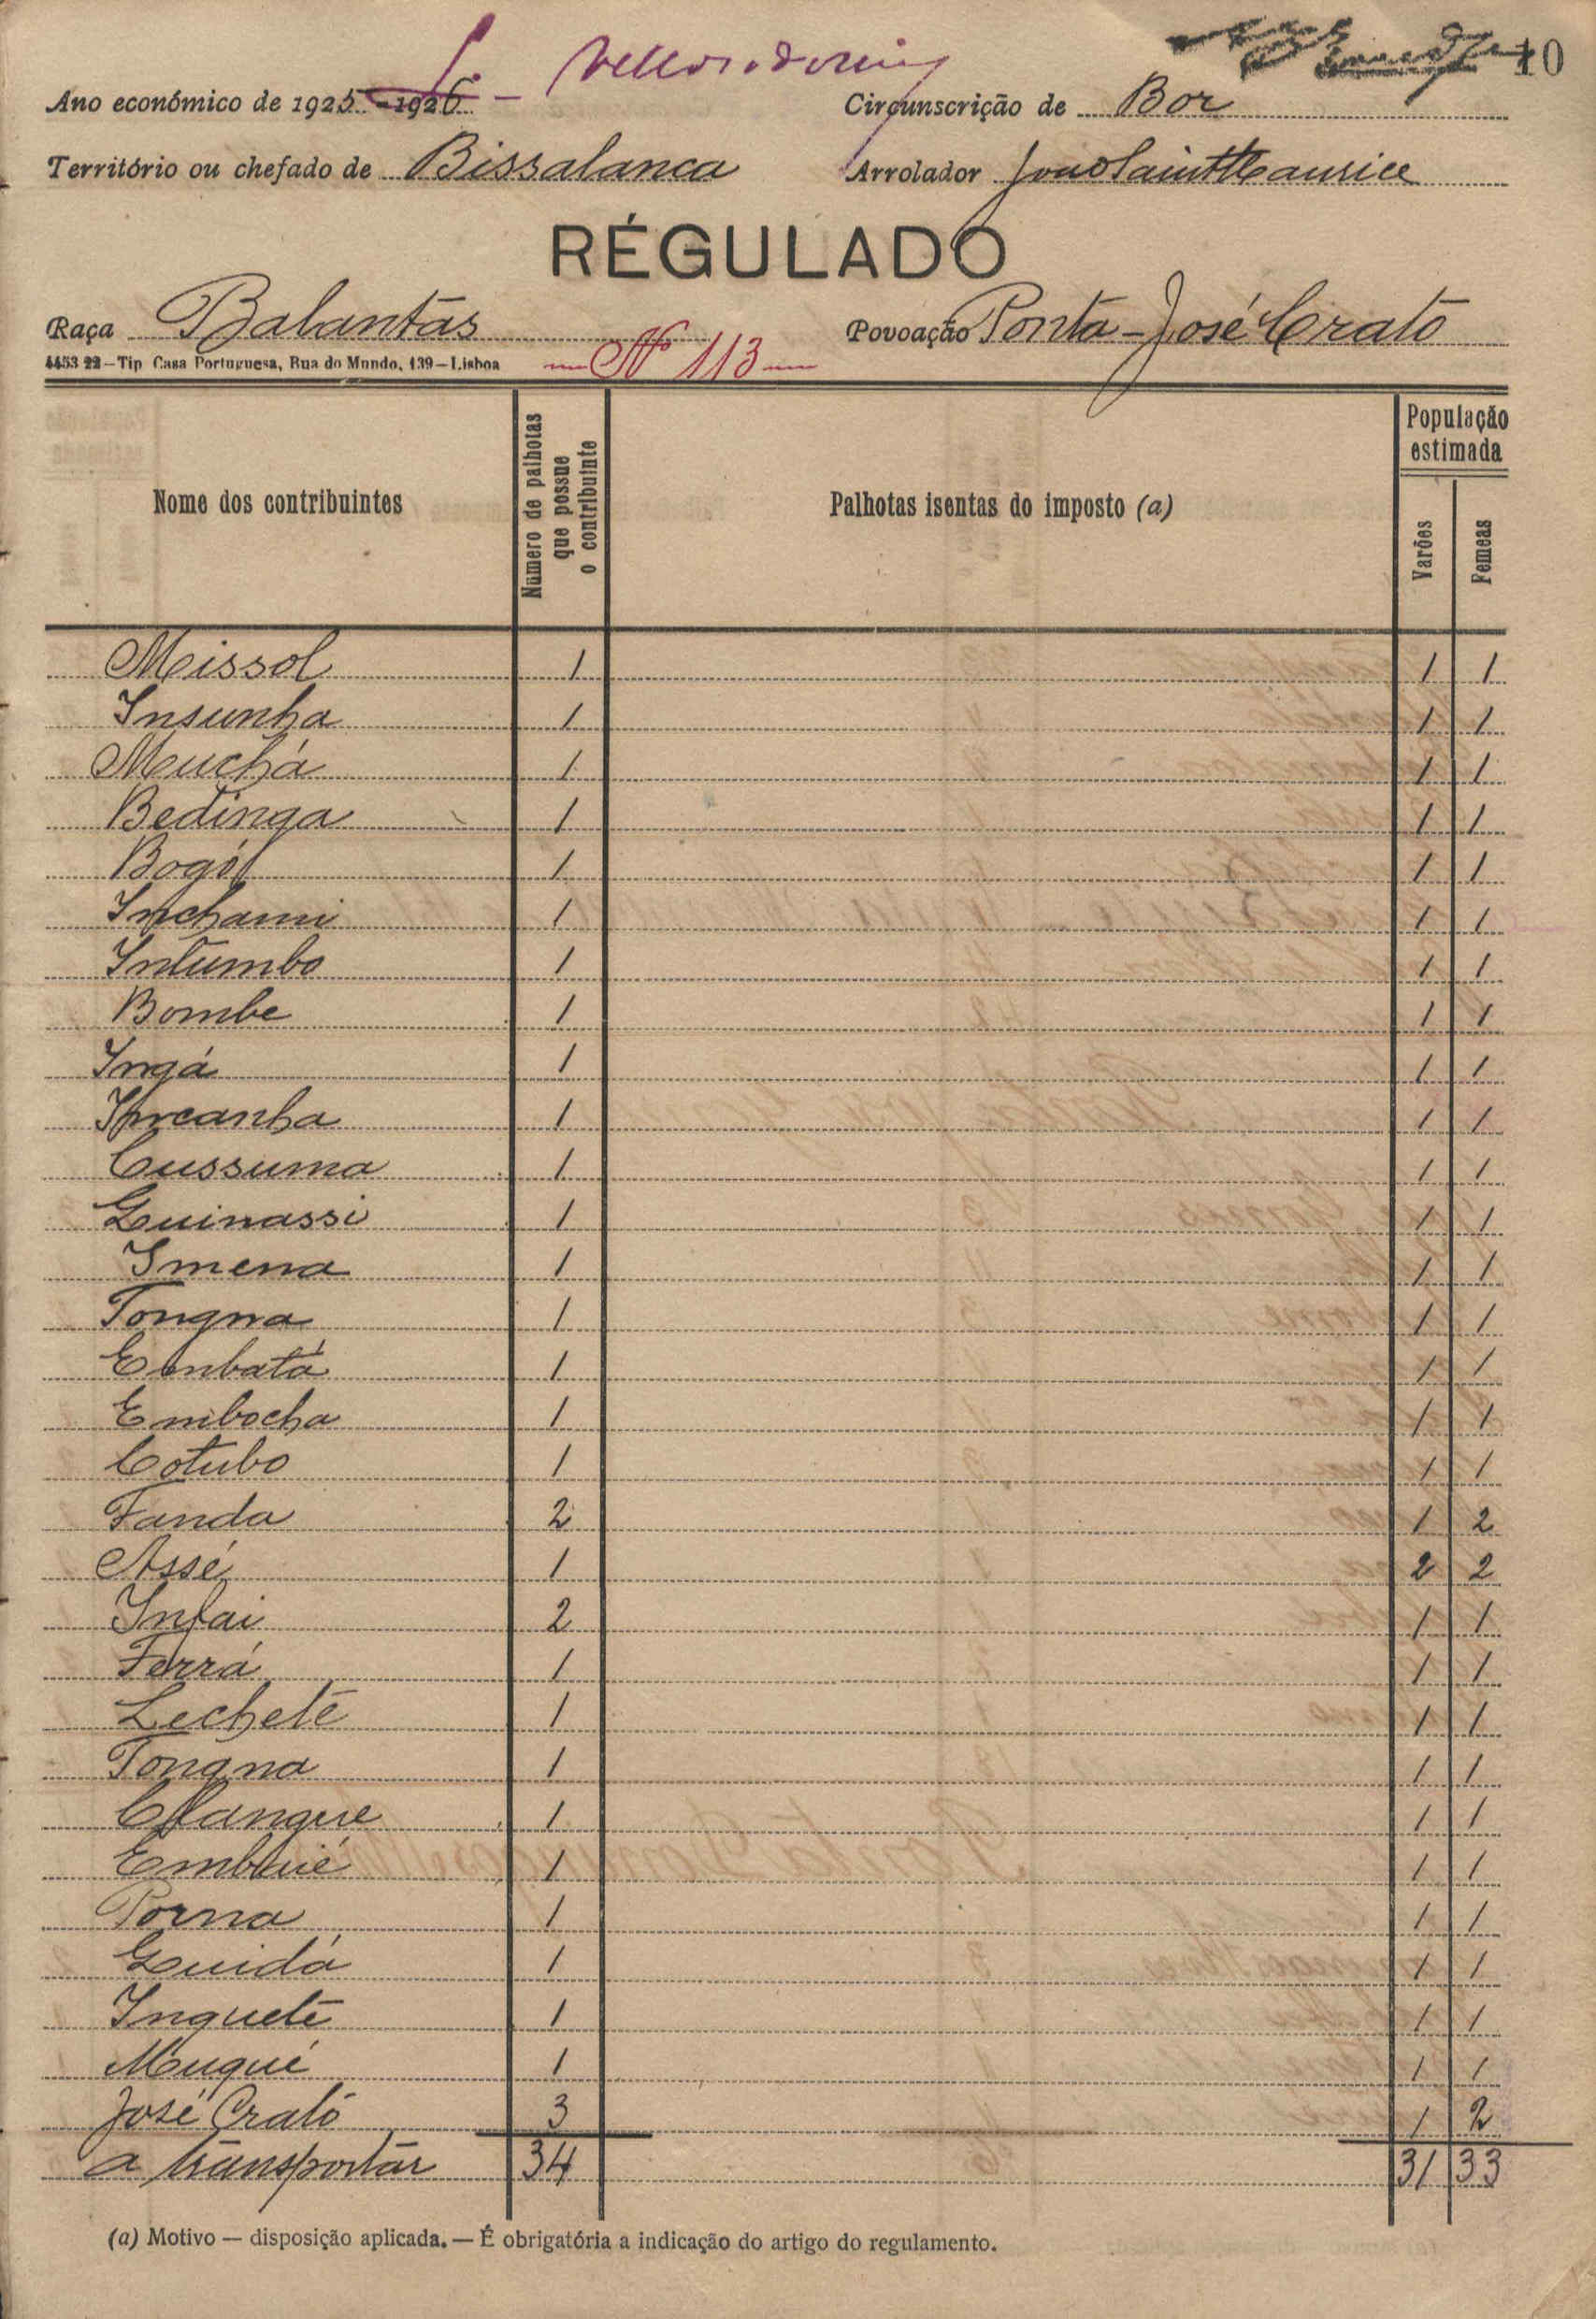 10
Ano económico de 1925-1926
Circunscrição de Bor
Território ou chefado de Bissalanca
Arrolador João Saint Maurice
RÉGULADO
Raça Balantas
Povoação Ponta-José Crato
4453 22—Tip Casa Portuguesa, Rua do Mundo, 139—Lisboa
Nº 113
Nome dos contribuintes
Número de palhotas que possue o contribuinte
Palhotas isentas do imposto (a)
População estimada
Varões
Femeas
Meissol 1 1 1
Insunha 1 1 1
Muchá 1 1 1
Bedinga 1 1 1
Bogó 1 1 1
Inchami 1 1 1
Intumbo 1 1 1
Bombe 1 1 1
Ingá 1 1 1
Increanha 1 1 1
Cussuma 1 1 1
Guinassi 1 1 1
Imena 1 1 1
Tongna 1 1 1
Embatá 1 1 1
Embocha 1 1 1
Cotubo 1 1 1
Fanda 2 1 2
Assé 1 2 2
Infai 2 1 1
Ferrá 1 1 1
Lecheté 1 1 1
Tongna 1 1 1
Clangue 1 1 1
Embaié 1 1 1
Porna 1 1 1
Guidá 1 1 1
Inqueté 1 1 1
Muqué 1 1 1
José Crató 3 1 2
a transportar 34 31 33
(a) Motivo — disposição aplicada. — É obrigatória a indicação do artigo do regulamento.